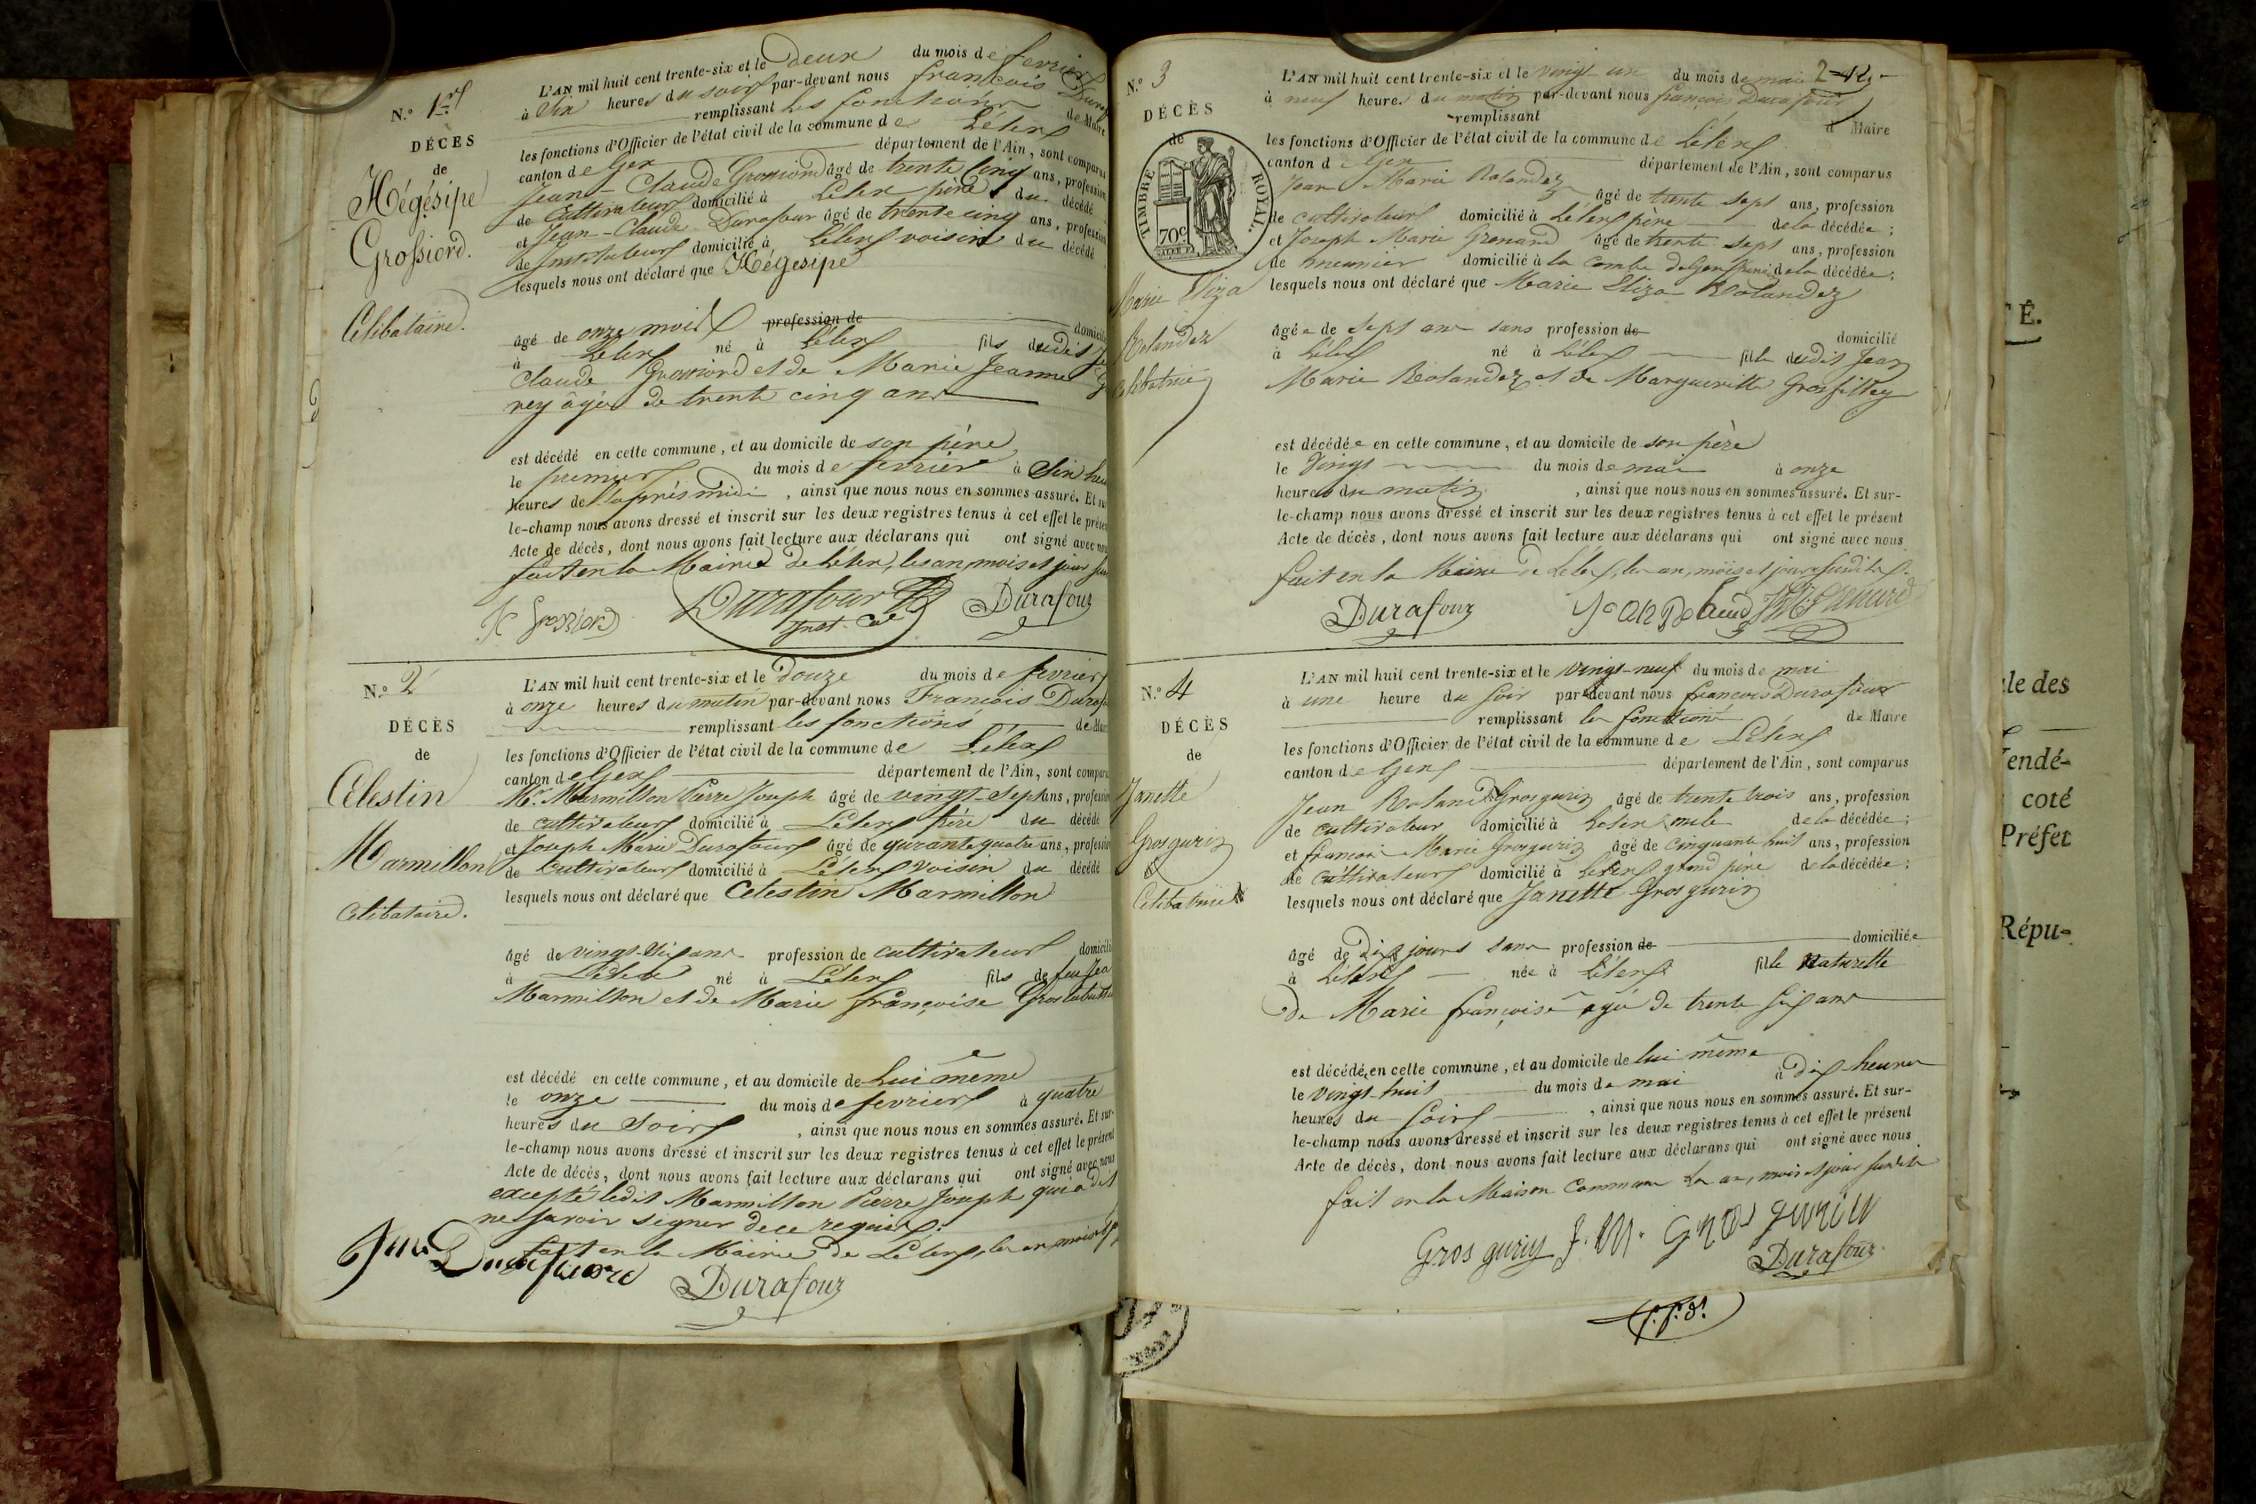 N.° 1er
DÉCÈS
de
Hégésipe
Grossiord.
Célibataire.
L'AN mil huit cent trente-six et le deux du mois de fevrier
à six heures du soir par-devant nous françois Duraf
remplissant les fonctions de Maire
les fonctions d'Officier de l'état civil de la commune de Lélex
canton de Gex département de l'Ain, sont comparus
Jean-Claude Grossiord âgé de trente cinq ans, profession
de Cultivateur domicilié à Lélex père du décédé
et Jean-Claude Durafour âgé de trente cinq ans, profession
de Instituteur domicilié à Lélex voisin du décédé
lesquels nous ont déclaré que Hégesipe
âgé de onze mois profession de domicilié
à Lélex né à Lélex fils dudit Je
Claude Grossiord et de Marie Jeanne G
rey âgée de trente cinq ans
est décédé en cette commune, et au domicile de son père
le premier du mois de fevrier à Six heu
heures de l'après midi, ainsi que nous nous en sommes assuré. Et sur
le-champ nous avons dressé et inscrit sur les deux registres tenus à cet effet le présen
Acte de décès, dont nous avons fait lecture aux déclarans qui ont signé avec nous
fait en la Mairie de Lélex, les an, mois et jour sus
Jc Grossiord Durafour Durafour
Inst.
N.° 2
DÉCÈS
de
Célestin
Marmillon
Célibataire.
L'AN mil huit cent trente-six et le douze du mois de fevrier
à onze heures du matin par-devant nous François Duraf
remplissant les fonctions de Mai
les fonctions d'Officier de l'état civil de la commune de Lélex
canton de Gex département de l'Ain, sont comparu
Mr Marmillon Pierre Joseph âgé de vingt-sept ans, profession
de cultivateur domicilié à Lélex frère du décédé
et Joseph Marie Durafour âgé de quarante quatre ans, profession
de cultivateur domicilié à Lélex voisin du décédé
lesquels nous ont déclaré que Celestin Marmillon
âgé de vingt-six ans profession de cultivateur domicili
à Lélex né à Lélex fils de feu Jea
Marmillon et de Marie françoise
est décédé en cette commune, et au domicile de Lui même
le onze du mois de fevrier à quatre
heures du soir, ainsi que nous nous en sommes assuré. Et sur-
le-champ nous avons dressé et inscrit sur les deux registres tenus à cet effet le présent
Acte de décès, dont nous avons fait lecture aux déclarans qui ont signé avec nous
excepté ledit Marmillon Pierre Joseph qui a dit
ne savoir signer de ce requis.
fait en la Mairie de Lélex, les an mois et
Durafour
N.° 3
DÉCÈS
de
TIMBRE ROYAL.
70c
Marie Eliza
Rolandez
L'AN mil huit cent trente-six et le vingt un du mois de mai
à neuf heures du matin par-devant nous françois Durafour
remplissant d Maire
les fonctions d'Officier de l'état civil de la commune de Lélex
canton d Gex département de l'Ain, sont comparus
Jean Marie Rolandez âgé de trente sept ans, profession
de cultivateur domicilié à Lélex père de la décédée;
et Joseph Marie Grenard âgé de trente sept ans, profession
de meunier domicilié à la combe de la décédée;
lesquels nous ont déclaré que Marie Eliza Rolandez
âgée de sept ans sans profession de domicilié
à Lélex né à Lélex fille dudit Jean
Marie Rolandez et de Margueritte Grosfilley
est décédée en cette commune, et au domicile de son père
le Vingt du mois de mai à onze
heures du matin, ainsi que nous nous en sommes assuré. Et sur-
le-champ nous avons dressé et inscrit sur les deux registres tenus à cet effet le présent
Acte de décès, dont nous avons fait lecture aux déclarans qui ont signé avec nous
fait en la Mairie de Lélex, les an, mois et jour susdits.
Durafour
N.° 4
DÉCÈS
de
Janette
Grosgurin
L'AN mil huit cent trente-six et le vingt-neuf du mois de mai
à une heure du soir par-devant nous françois Durafour
remplissant les fonctions de Maire
les fonctions d'Officier de l'état civil de la commune de Lélex
canton de Gex département de l'Ain, sont comparus
Jean Roland Grosgurin âgé de trente trois ans, profession
de cultivateur domicilié à Lelex oncle de la décédée;
et françois Marie Grosgurin âgé de cinquante huit ans, profession
de cultivateur domicilié à Lelex grand père de la décédée;
lesquels nous ont déclaré que Janette Grosgurin
âgé de dix jours sans profession de domiciliée
à Lélex née à Lélex fille naturelle
de Marie françoise agée de trente six ans
est décédé en cette commune, et au domicile de lui même
le vingt-huit du mois de mai à dix heures
heures du soir, ainsi que nous nous en sommes assuré. Et sur-
le-champ nous avons dressé et inscrit sur les deux registres tenus à cet effet le présent
Acte de décès, dont nous avons fait lecture aux déclarans qui ont signé avec nous
fait en la Maison Commune les an, mois et jour susdits
Gros gurin f. m. Gros gurin
Durafour
É.
le des
endé-
coté
Préfet
Répu-